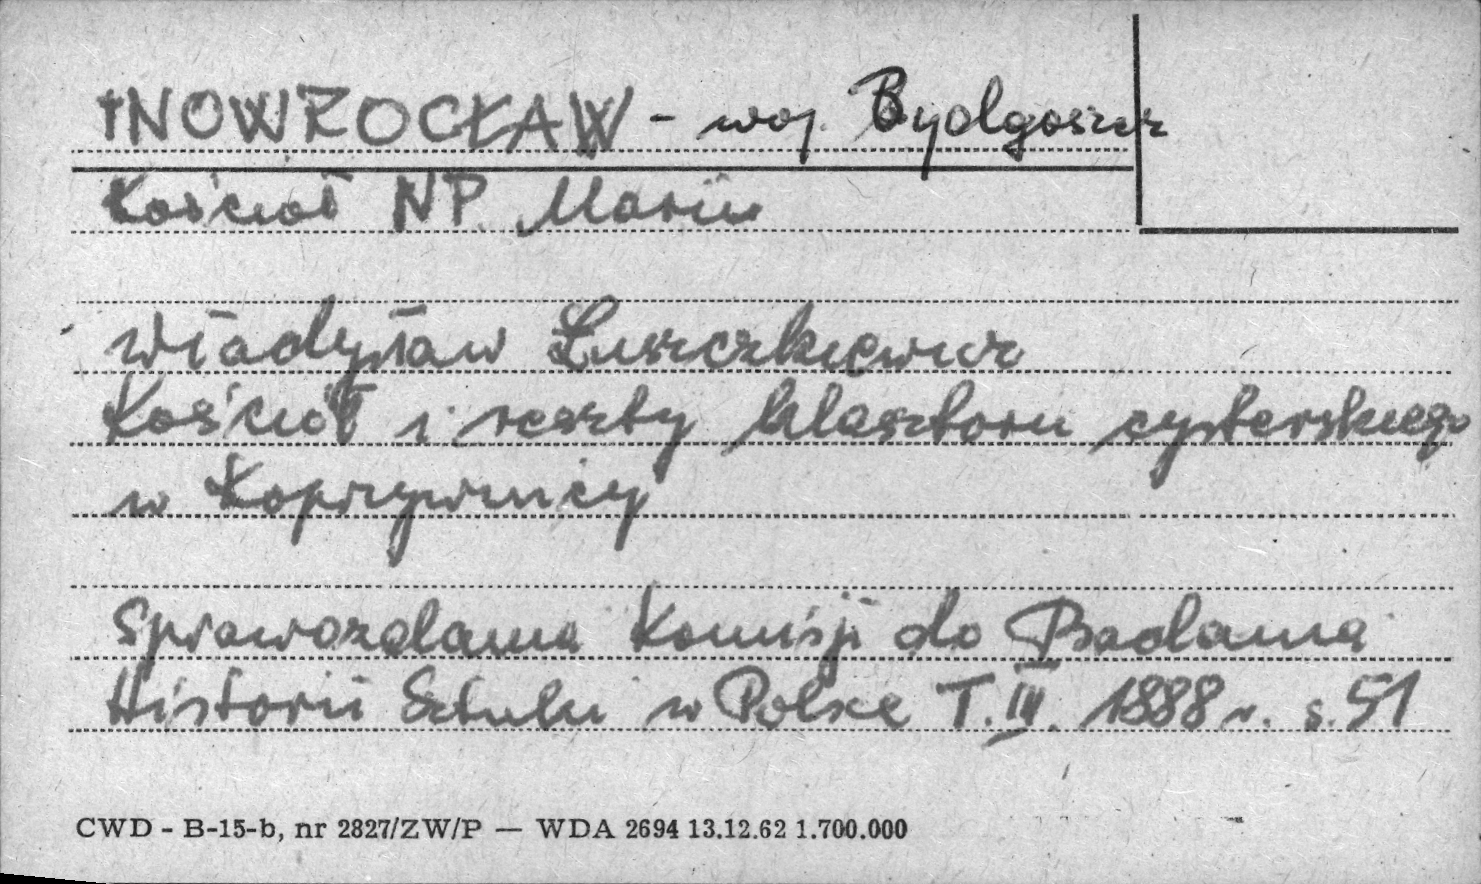 INOWROCŁAW - woj. Bydgoszcz
Kościoł NP. Marii
Władysław Łuszczkiewicz
Kościół i reszty klasztoru cysterskiego
w Koprzywnicy
Sprawozdania Komisji do Badania
Historii Sztuki w Polsce T. III. 1888 r. s. 51
CWD - B-15-b, nr 2827/ZW/P — WDA 2694 13.12.62 1.700.000